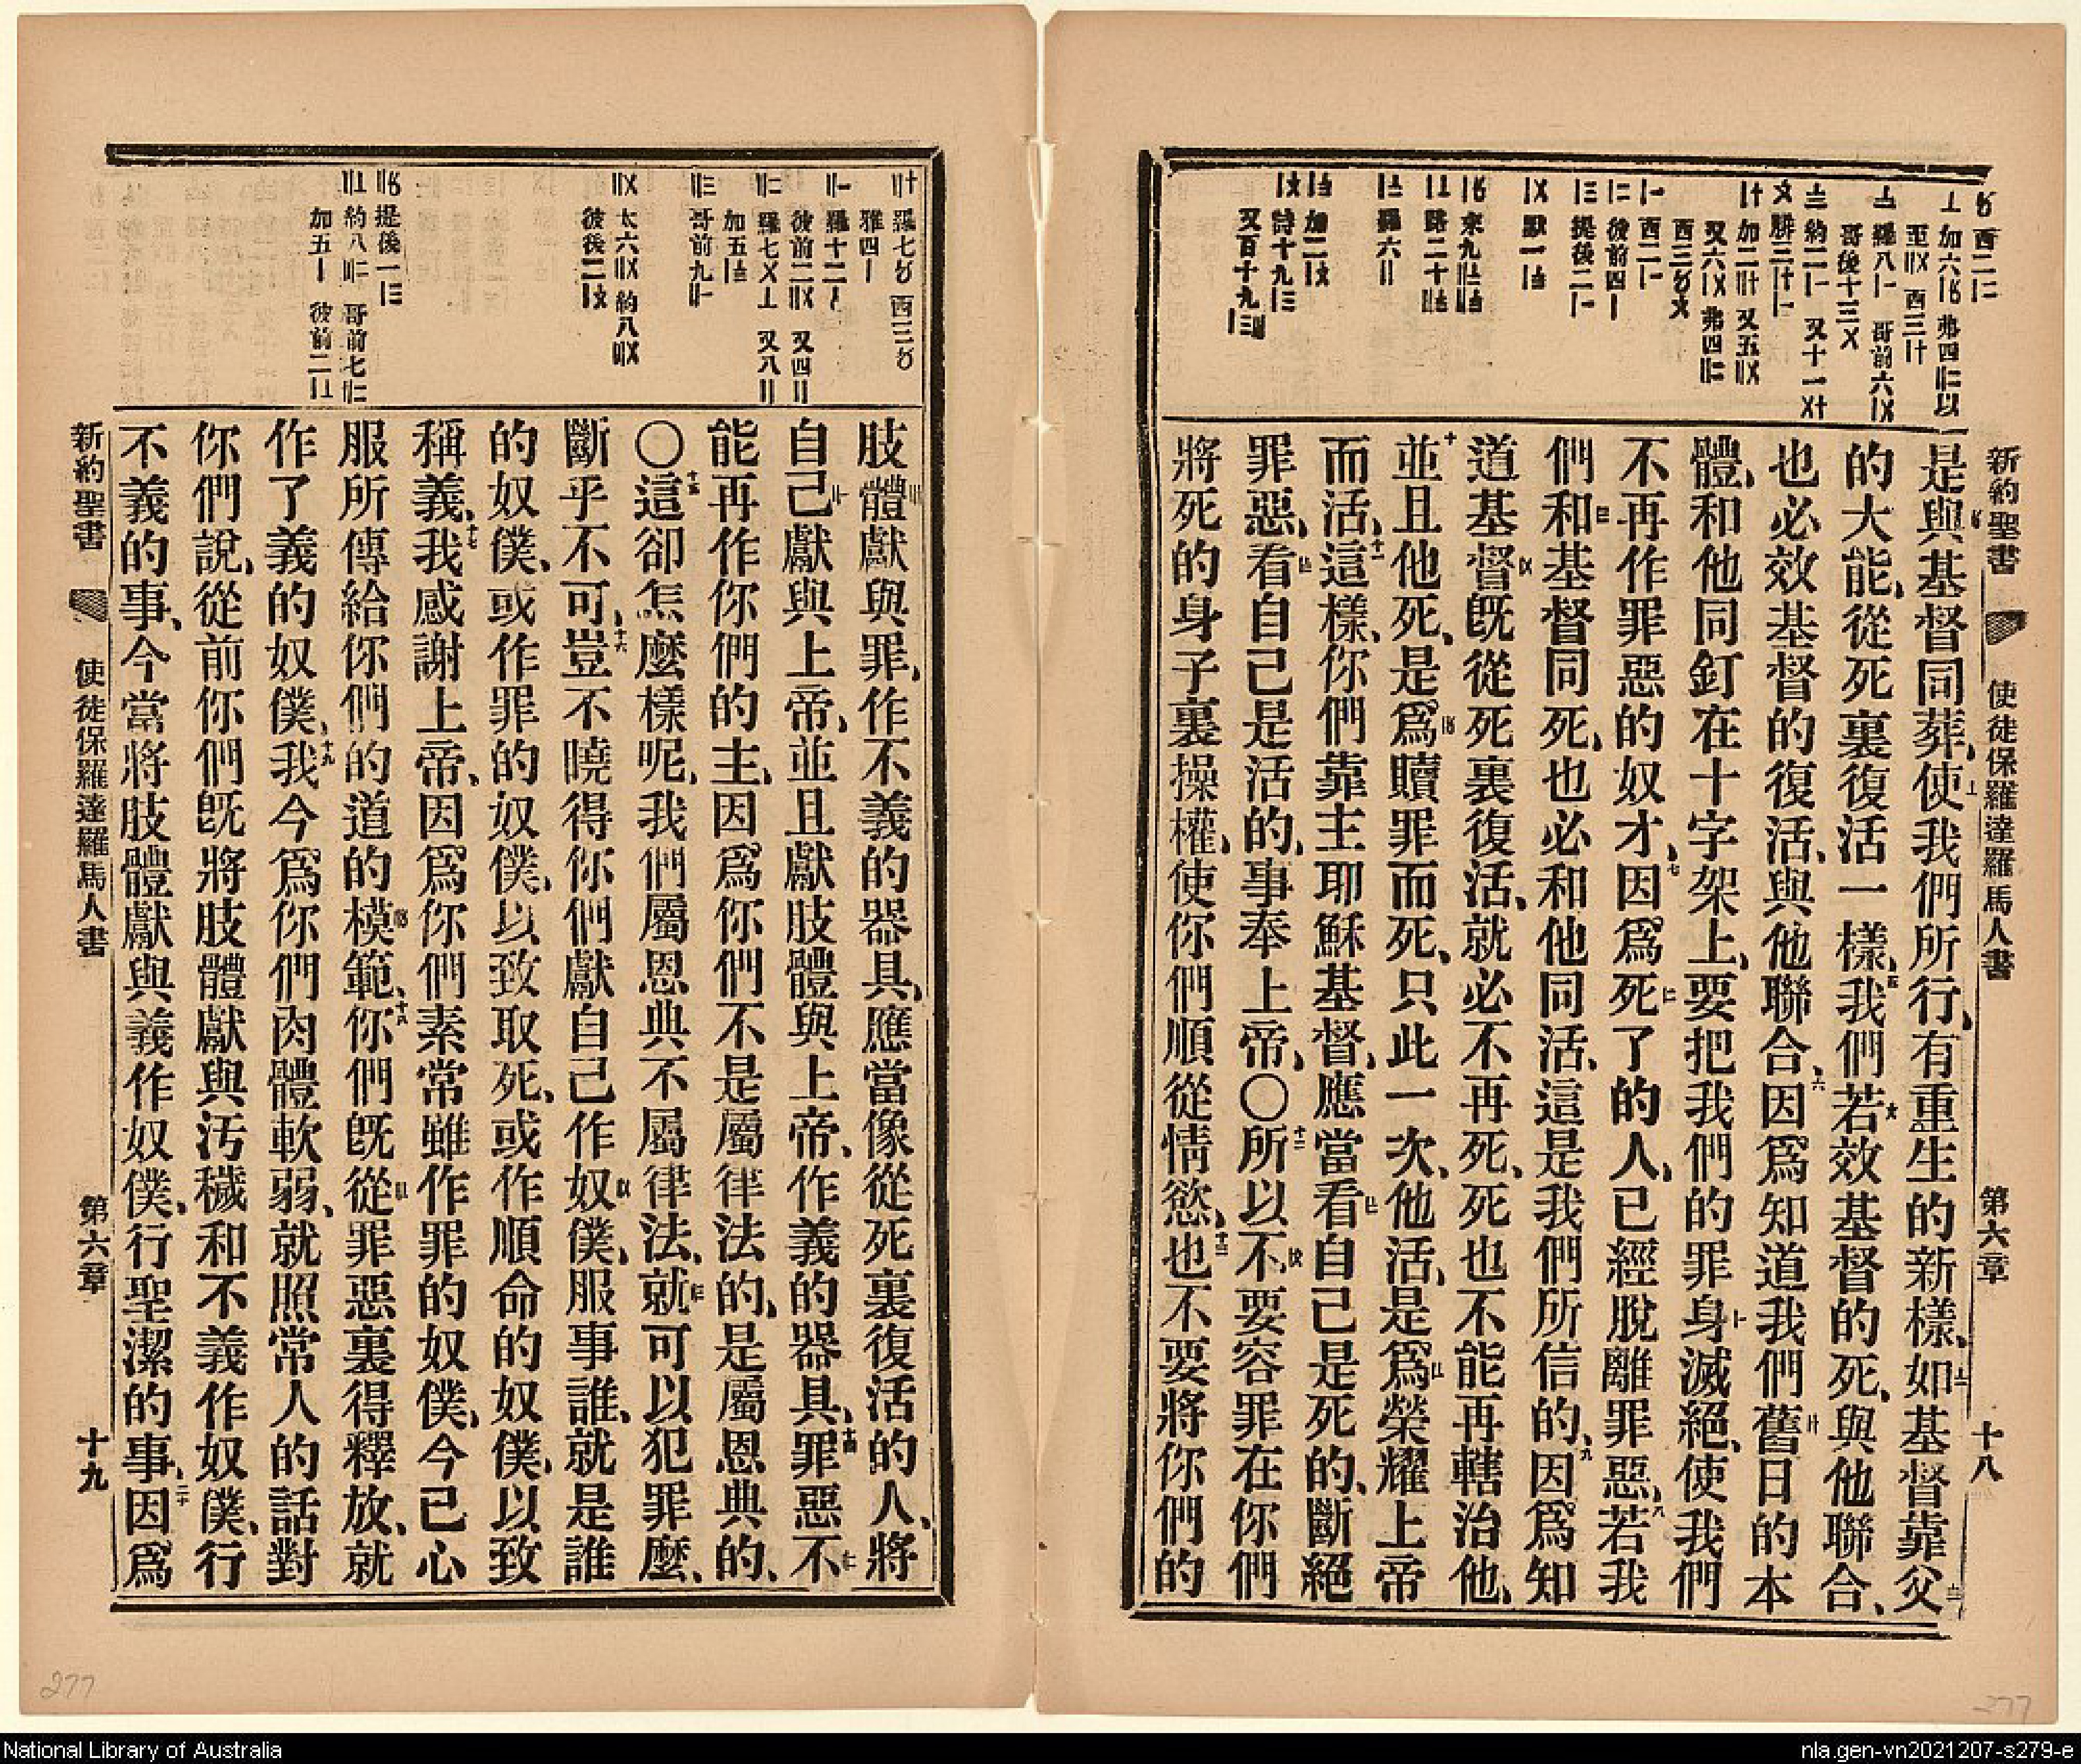 新約聖書 使徒保羅達羅馬人書 第六章 十八
是與基督同葬、使我們所行、有重生的新樣、如基督靠父
的大能、從死裏復活一樣、我們若效基督的死、與他聯合、
也必效基督的復活、與他聯合、因爲知道我們舊日的本
體、和他同釘在十字架上、要把我們的罪身滅絕、使我們
不再作罪惡的奴才、因爲死了的人、已經脫離罪惡、若我
們和基督同死、也必和他同活、這是我們所信的、因爲知
道基督旣從死裏復活、就必不再死、死也不能再轄治他、
並且他死、是爲贖罪而死、只此一次、他活、是爲榮耀上帝
而活、這樣、你們靠主耶穌基督、應當看自己是死的、斷絕
罪惡、看自己是活的、事奉上帝、〇所以不要容罪在你們
將死的身子裏操權、使你們順從情慾、也不要將你們的
肢體獻與罪、作不義的器具、應當像從死裏復活的人、將
自己獻與上帝、並且獻肢體與上帝、作義的器具、罪惡不
能再作你們的主、因爲你們不是屬律法的、是屬恩典的、
〇這卻怎麼樣呢、我們屬恩典不屬律法、就可以犯罪麼、
斷乎不可、豈不曉得你們獻自己作奴僕、服事誰、就是誰
的奴僕、或作罪的奴僕、以致取死、或作順命的奴僕、以致
稱義、我感謝上帝、因爲你們素常雖作罪的奴僕、今已心
服所傳給你們的道的模範、你們旣從罪惡裏得釋放、就
作了義的奴僕、我今爲你們肉體軟弱、就照常人的話對
你們說、從前你們旣將肢體獻與汚穢和不義作奴僕、行
不義的事、今當將肢體獻與義作奴僕、行聖潔的事、因爲
新約聖書 使徒保羅達羅馬人書 第六章 十九
277
277
National Library of Australia
nla.gen-vn2021207-s279-e